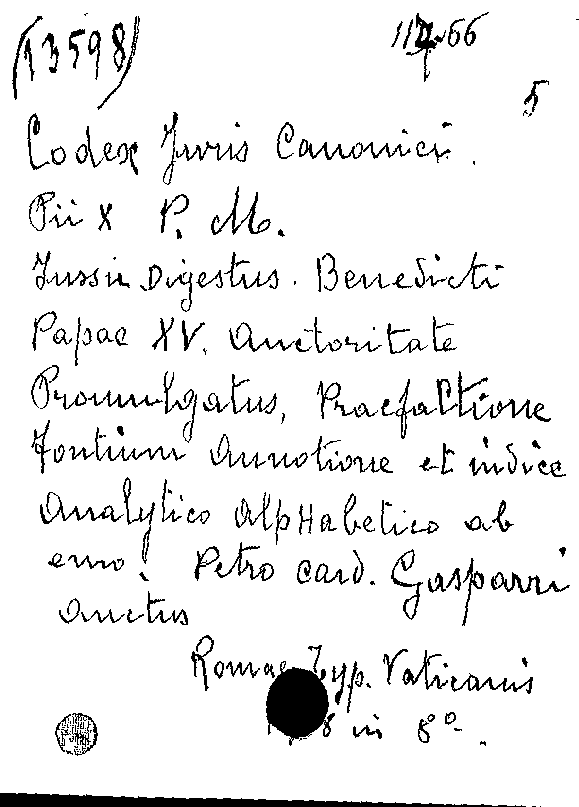 (13598)
66
5
Codex Juris Canonici.
Pii X P. M.
Jussu Digestus. Benedicti
Papae XV. Auctoritate
Promulgatus, Praefattione
fontium Annotione et indice
Analytico AlpHabetico ab
emo. Petro card. Gasparri
Auctus
Romae Typ. Vaticanis
8 in 8o.